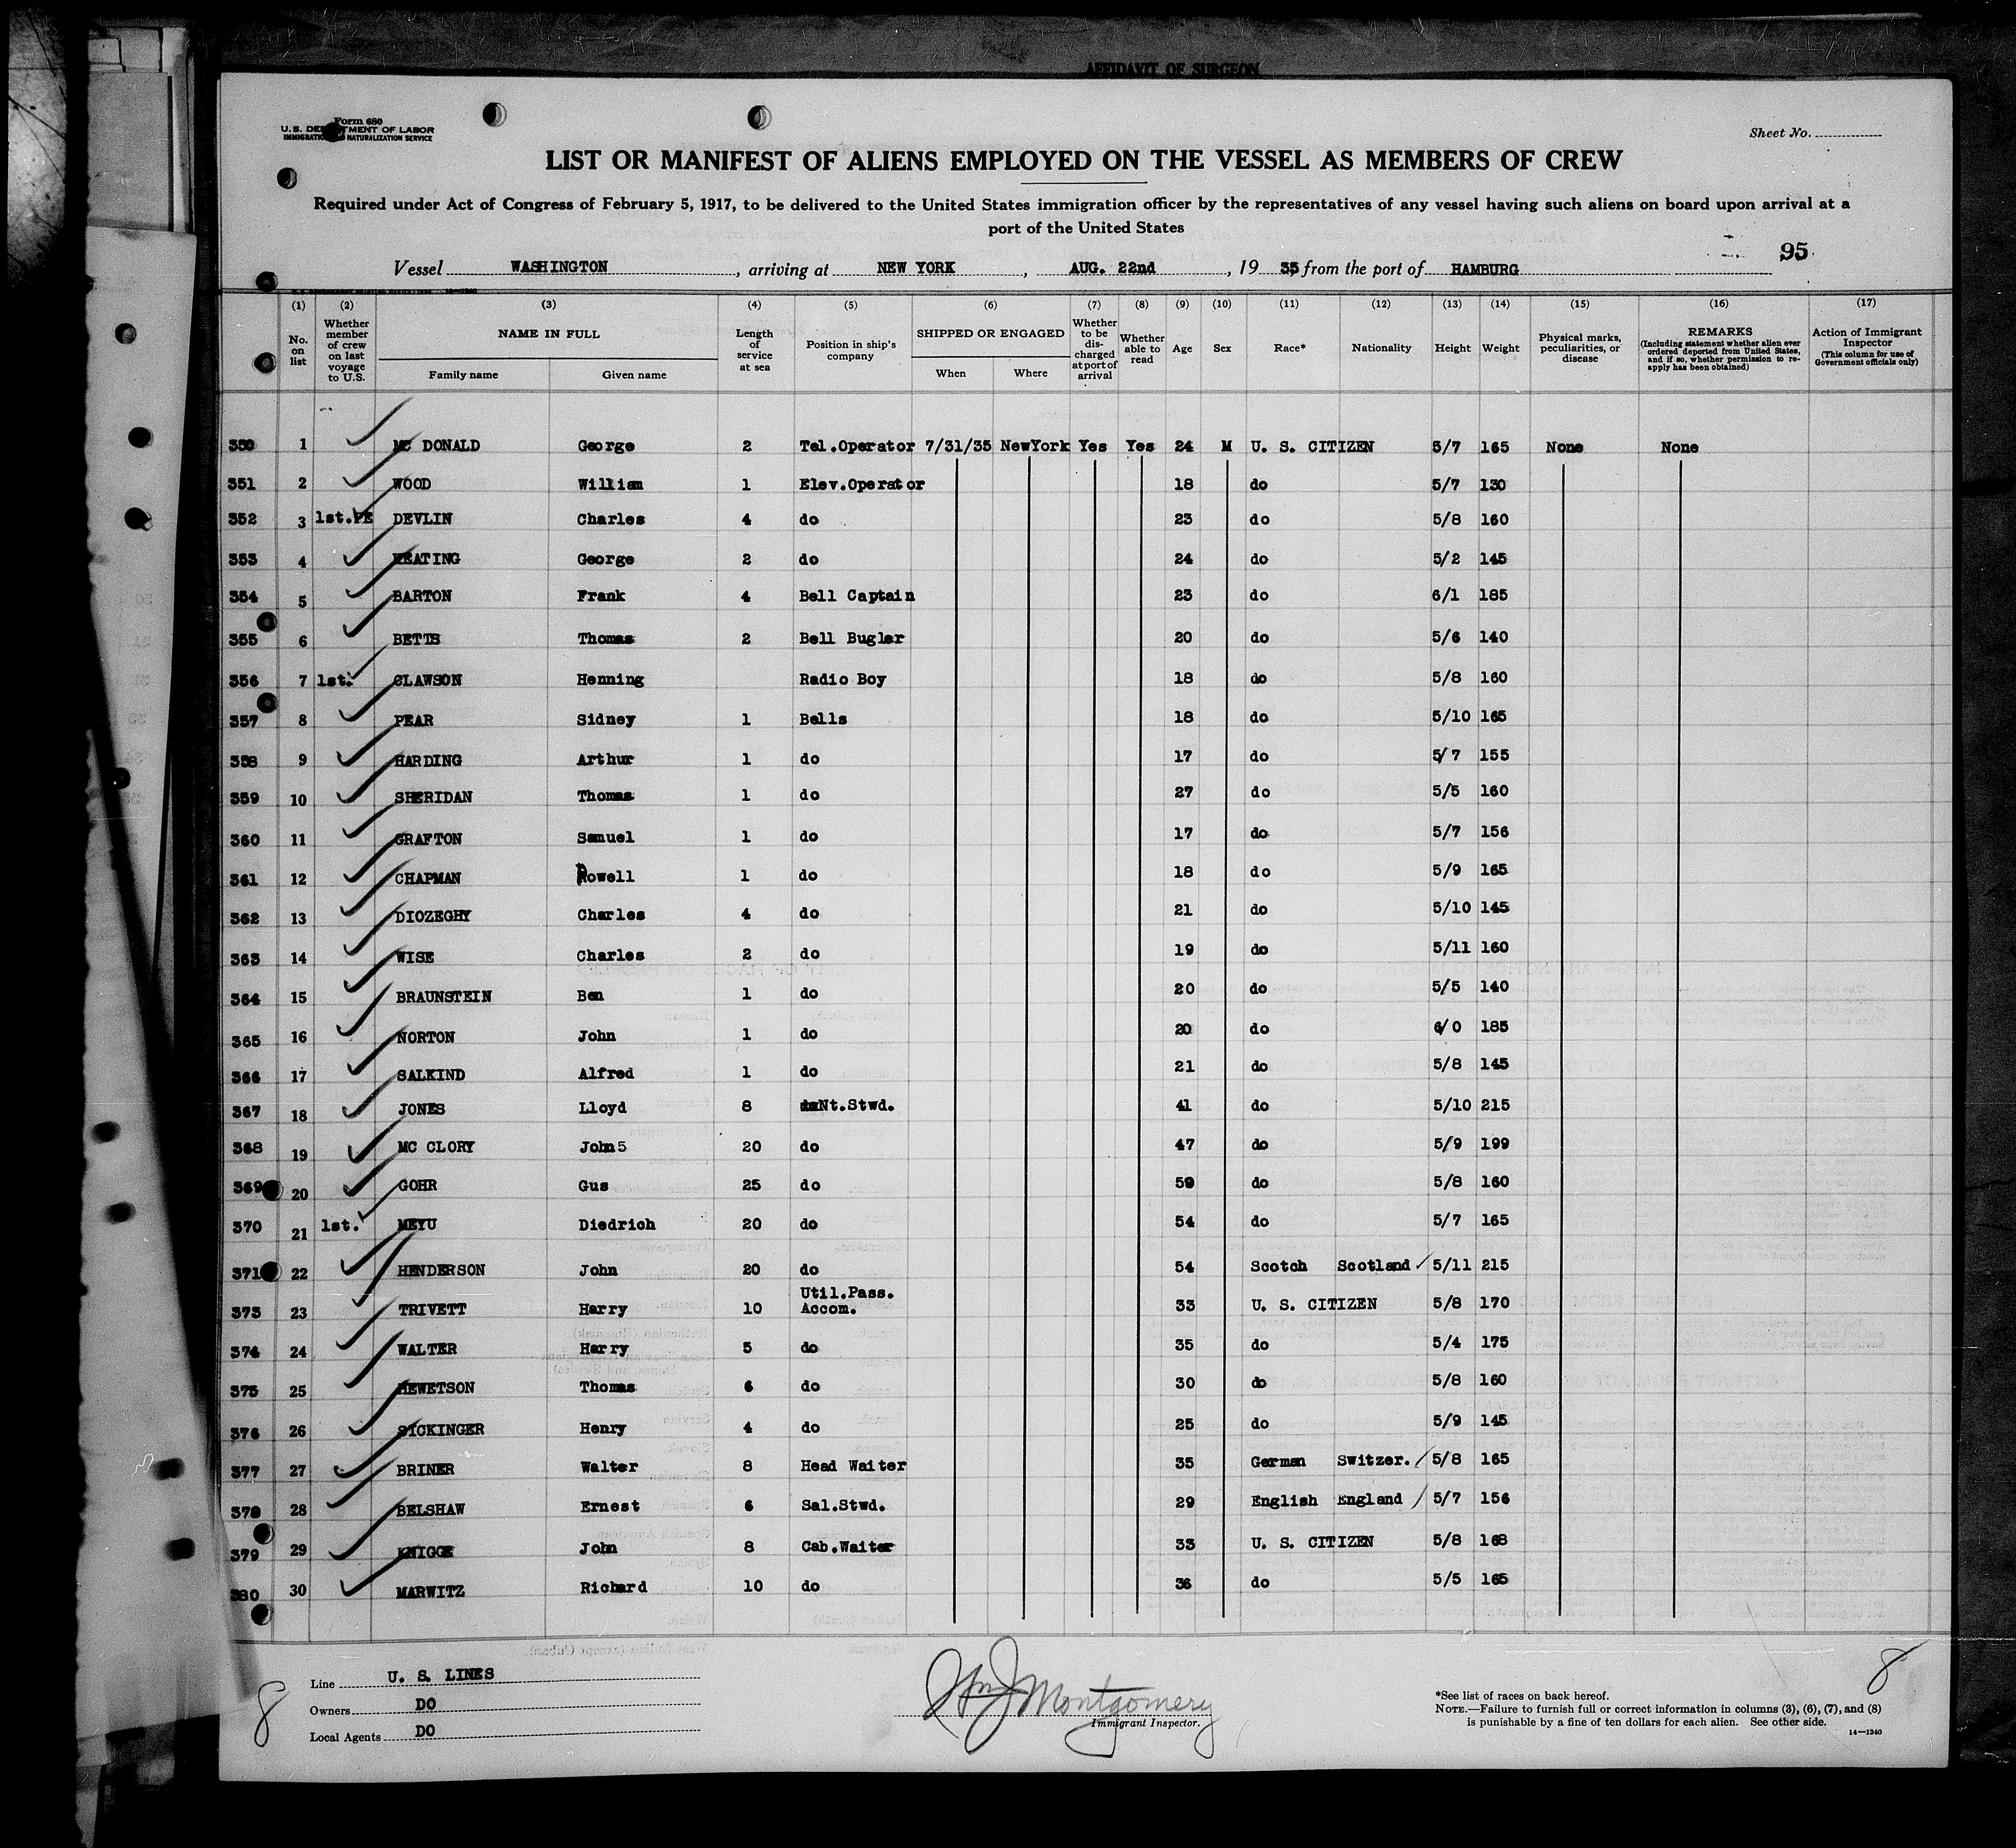 AFFIDAVIT OF SURGEON
Form 680
U. S. DEPARTMENT OF LABOR
IMMIGRATION AND NATURALIZATION SERVICE
Sheet No.
LIST OR MANIFEST OF ALIENS EMPLOYED ON THE VESSEL AS MEMBERS OF CREW
Required under Act of Congress of February 5, 1917, to be delivered to the United States immigration officer by the representatives of any vessel having such aliens on board upon arrival at a
port of the United States
95
Vessel WASHINGTON, arriving at NEW YORK, AUG. 22nd, 19 35 from the port of HAMBURG
(1) (2) (3) (4) (5) (6) (7) (8) (9) (10) (11) (12) (13) (14) (15) (16) (17)
No. on list Whether member of crew on last voyage to U.S. NAME IN FULL Family name Given name Length of service at sea Position in ship's company SHIPPED OR ENGAGED When Where Whether to be discharged at port of arrival Whether able to read Age Sex Race* Nationality Height Weight Physical marks, peculiarities, or disease REMARKS (Including statement whether alien ever ordered deported from United States, and if so, whether permission to re-apply has been obtained) Action of Immigrant Inspector (This column for use of Government officials only)
350 1 MC DONALD George 2 Tel.Operator 7/31/35 NewYork Yes Yes 24 M U. S. CITIZEN 5/7 165 None None
351 2 WOOD William 1 Elev.Operator 18 do 5/7 130
352 3 1st.PE DEVLIN Charles 4 do 23 do 5/8 160
353 4 KEATING George 2 do 24 do 5/2 145
354 5 BARTON Frank 4 Bell Captain 23 do 6/1 185
355 6 BETTS Thomas 2 Bell Bugler 20 do 5/6 140
356 7 1st. CLAWSON Henning Radio Boy 18 do 5/8 160
357 8 PEAR Sidney 1 Bells 18 do 5/10 165
358 9 HARDING Arthur 1 do 17 do 5/7 155
359 10 SHERIDAN Thomas 1 do 27 do 5/5 160
360 11 GRAFTON Samuel 1 do 17 do 5/7 156
361 12 CHAPMAN Rowell 1 do 18 do 5/9 165
362 13 DIOZEGHY Charles 4 do 21 do 5/10 145
363 14 WISE Charles 2 do 19 do 5/11 160
364 15 BRAUNSTEIN Ben 1 do 20 do 5/5 140
365 16 NORTON John 1 do 20 do 6/0 185
366 17 SALKIND Alfred 1 do 21 do 5/8 145
367 18 JONES Lloyd 8 Nt.Stwd. 41 do 5/10 215
368 19 MC CLORY John5 20 do 47 do 5/9 199
369 20 GOHR Gus 25 do 59 do 5/8 160
370 21 1st. MEYU Diedrich 20 do 54 do 5/7 165
371 22 HENDERSON John 20 do 54 Scotch Scotland 5/11 215
373 23 TRIVETT Harry 10 Util.Pass. Accom. 33 U. S. CITIZEN 5/8 170
374 24 WALTER Harry 5 do 35 do 5/4 175
375 25 HEWETSON Thomas 6 do 30 do 5/8 160
376 26 SICKINGER Henry 4 do 25 do 5/9 145
377 27 BRINER Walter 8 Head Waiter 35 German Switzer. 5/8 165
378 28 BELSHAW Ernest 6 Sal.Stwd. 29 English England 5/7 156
379 29 KNIGGE John 8 Cab.Waiter 33 U. S. CITIZEN 5/8 168
380 30 MARWITZ Richard 10 do 36 do 5/5 165
Line U. S. LINES
Owners DO
Local Agents DO
8
Wm J Montgomery
Immigrant Inspector.
8
*See list of races on back hereof.
NOTE.—Failure to furnish full or correct information in columns (3), (6), (7), and (8)
is punishable by a fine of ten dollars for each alien. See other side.
14—1240